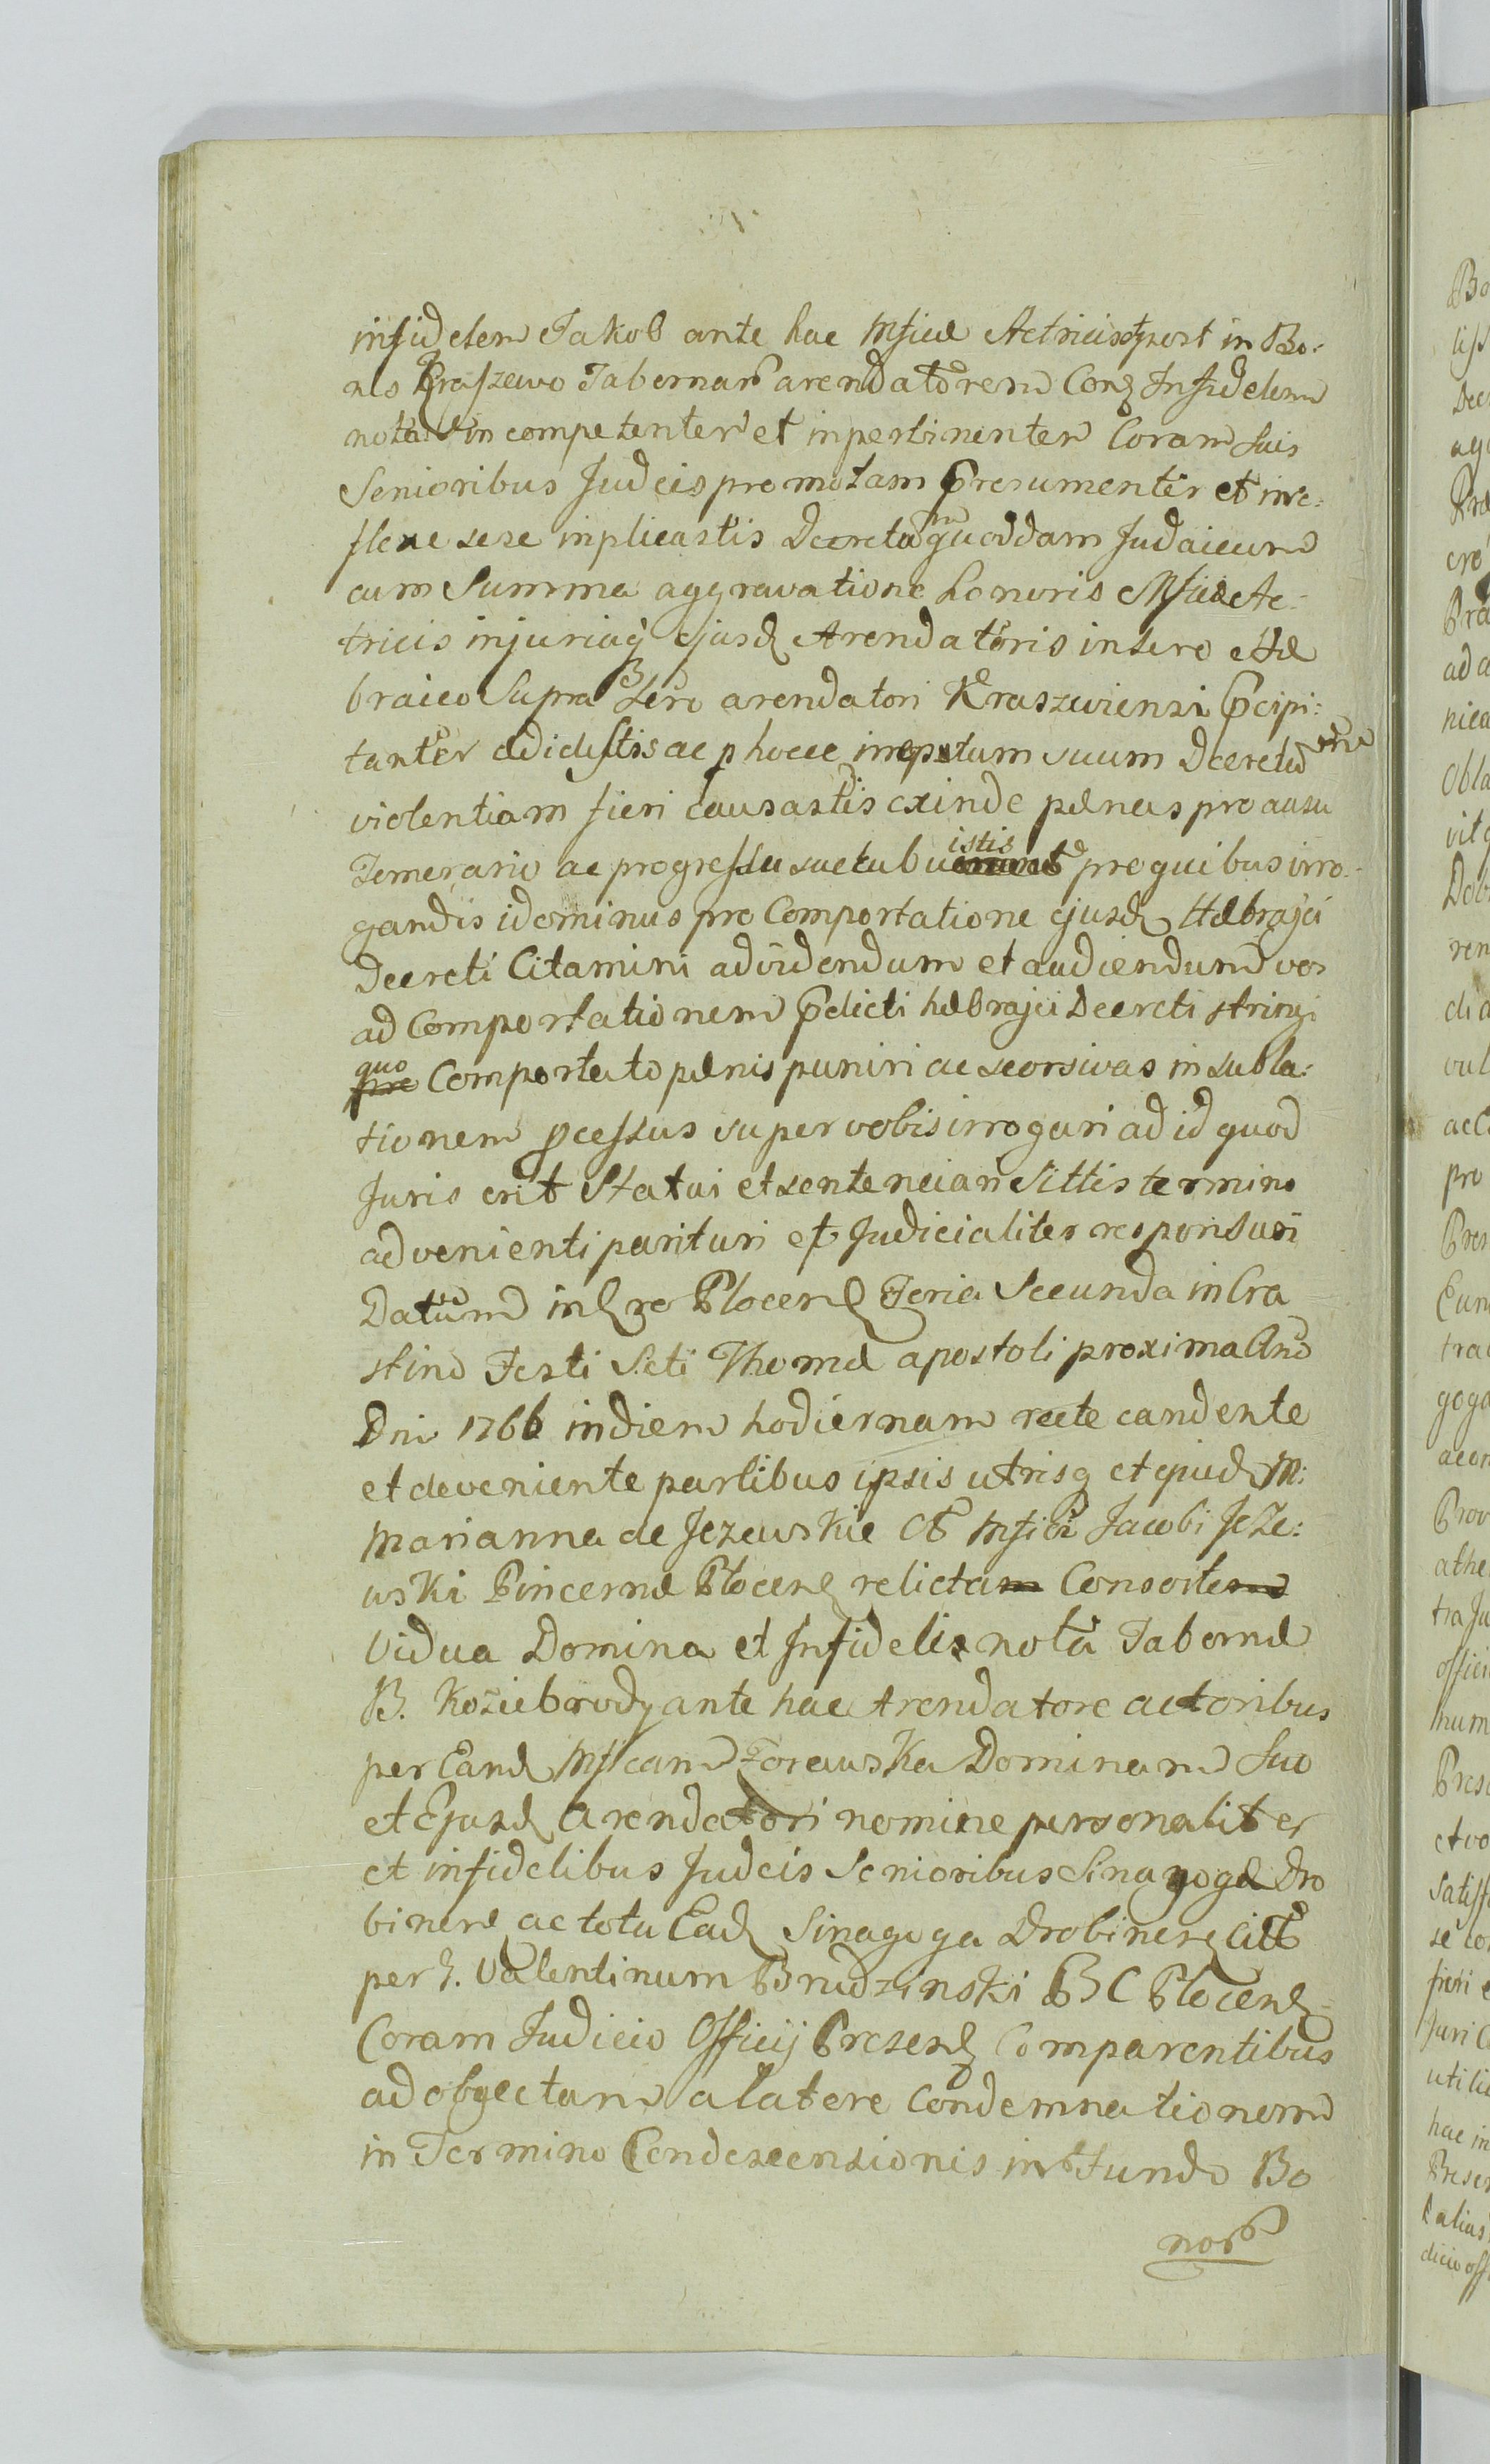 infidelem Jakob ante hac Mficæ Actricis post in Bo:
nis Kraszewo Tabernarū arendatorem Conz Infidelem
notū incompetenter et inpertinenter Coram suis
Senioribus Judeis promotam Presumenter et irre:
flexe sese inplicastis Decretum quoddam Judaicum
cum Summa aggravatione honoris Mficæ Ac:
tricis injuriaq ejusd Arendatoris instro Hæ
braico Supra Zero arendatori Kraszwiensi Pcipi:
tanter edidestis ac p hocce inreputum suum Decretū
violentiam fieri causastis exinde pænas pro ausu
Temerario ac progressu sucubuistis pro quibus irro:
gandis idominus pro Comportatione ejusd Hæbrajci
Decreti Citamini ad videndum et audiendum vos
ad Comportationem Pdicti hæbrajci Decreti stringi
quo Comportato pænis puniri ac seorsivas in subla:
tionem pcessus super vobis irrogari ad id quod
Juris erit Statui et sentenciari sittis termino
advenienti parituri et Judicialiter responsuri
Datum in Zro Plocens Feria Secunda in Cra
stino Festi Scti Thomæ apostoli proxima Ano
Dni 1766 in diem hodiernam recte candente
et deveniente partibus ipsis utrisq et quid M:
Marianna de Jezewskie Mfici Jacobi Jeże:
wski Pincernæ Plocens relicta Consorte
Vidua Domina et Infidelis nota Tabernæ
B. Koziebrody ante hac Arendatore actoribus
per Eand Mficam Zorawska Dominam Suo
et Ejusd Arendatori nomine personaliter
et infidelibus Judeis Senioribus Sinagogæ Dro
binens ac tota Ead Sinagoga Drobinens Citt
per H. Valentinum Brudzinski B C Plocens
Coram Judicio Officij Presens Comparentibus
ad objectam a latere Condemnationem
in Termino Condescensionis in Fundo Bo
nor